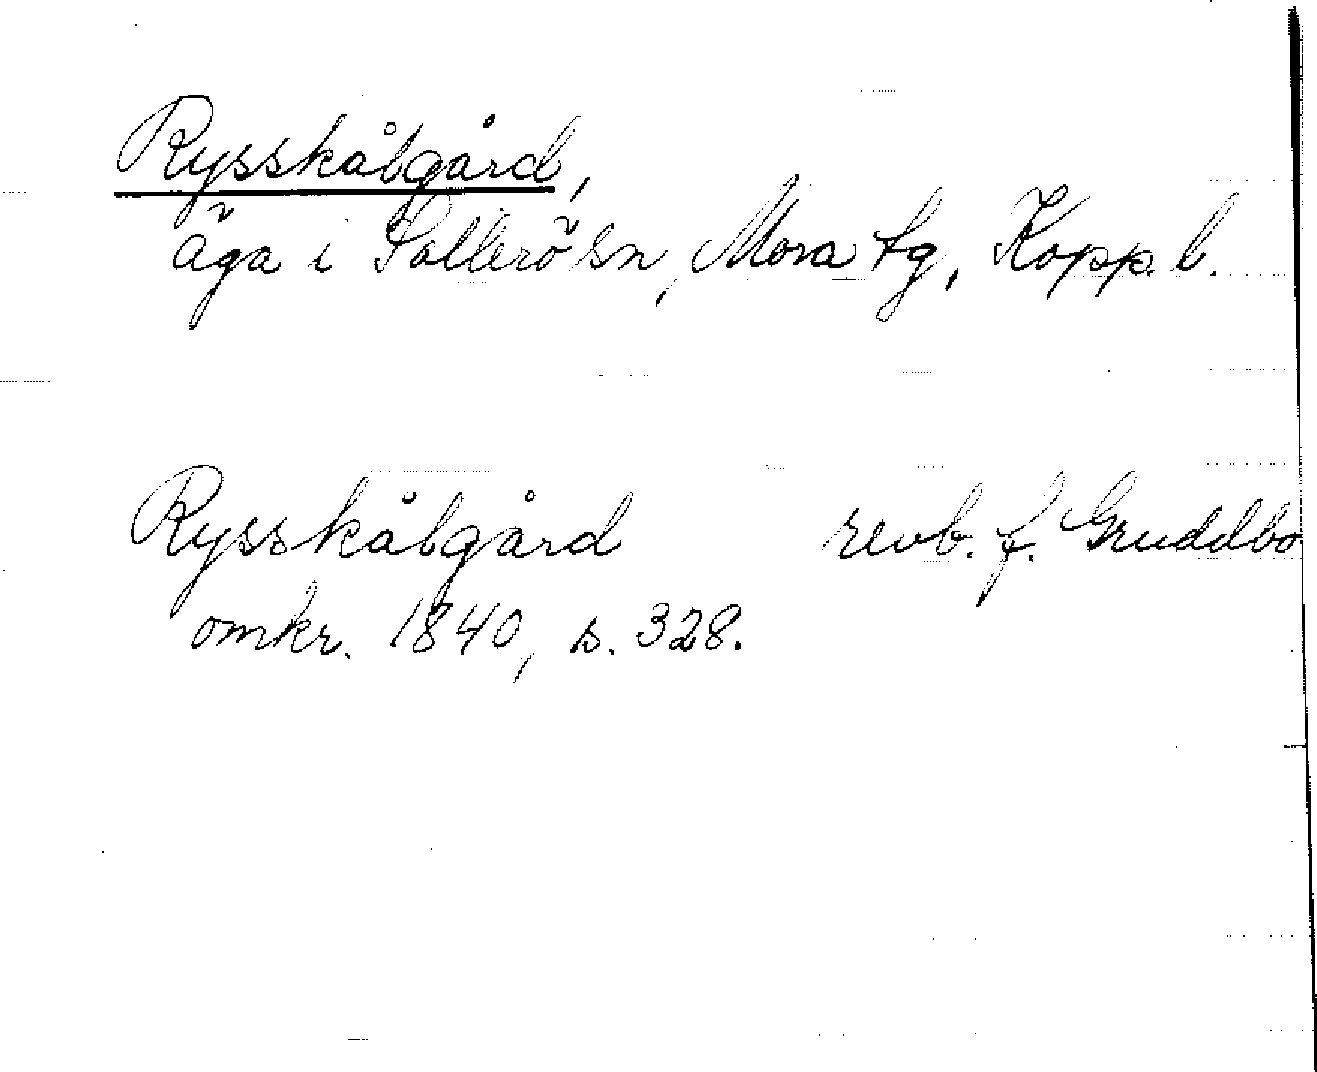 Rysskålgård,
äga i Sollerö sn, Mora tg, Kopp. l.
Rysskålgård revb. f. Gruddbo
omkr. 1840, s. 328.